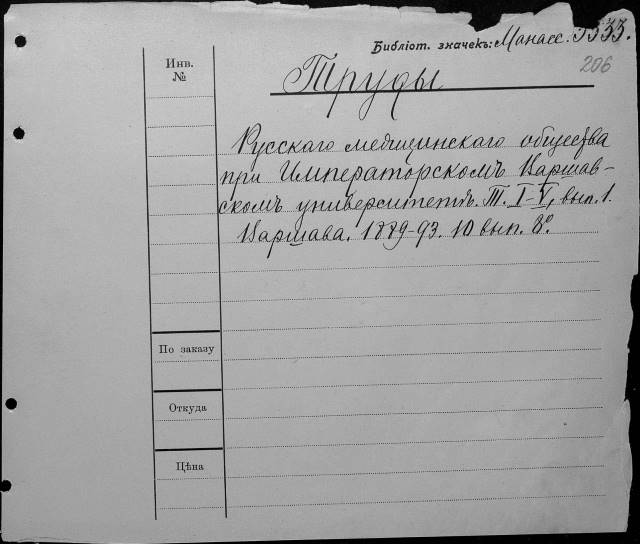 Библіот. значекъ: Манасс. 3333.
206
Инв.
№
Труды
Русскаго медицинскаго общества
при Императорскомъ Варшав-
скомъ университетѣ. Т. I-V, вып. 1.
Варшава. 1889-93. 10 вып. 8º.
По заказу
Откуда
Цѣна